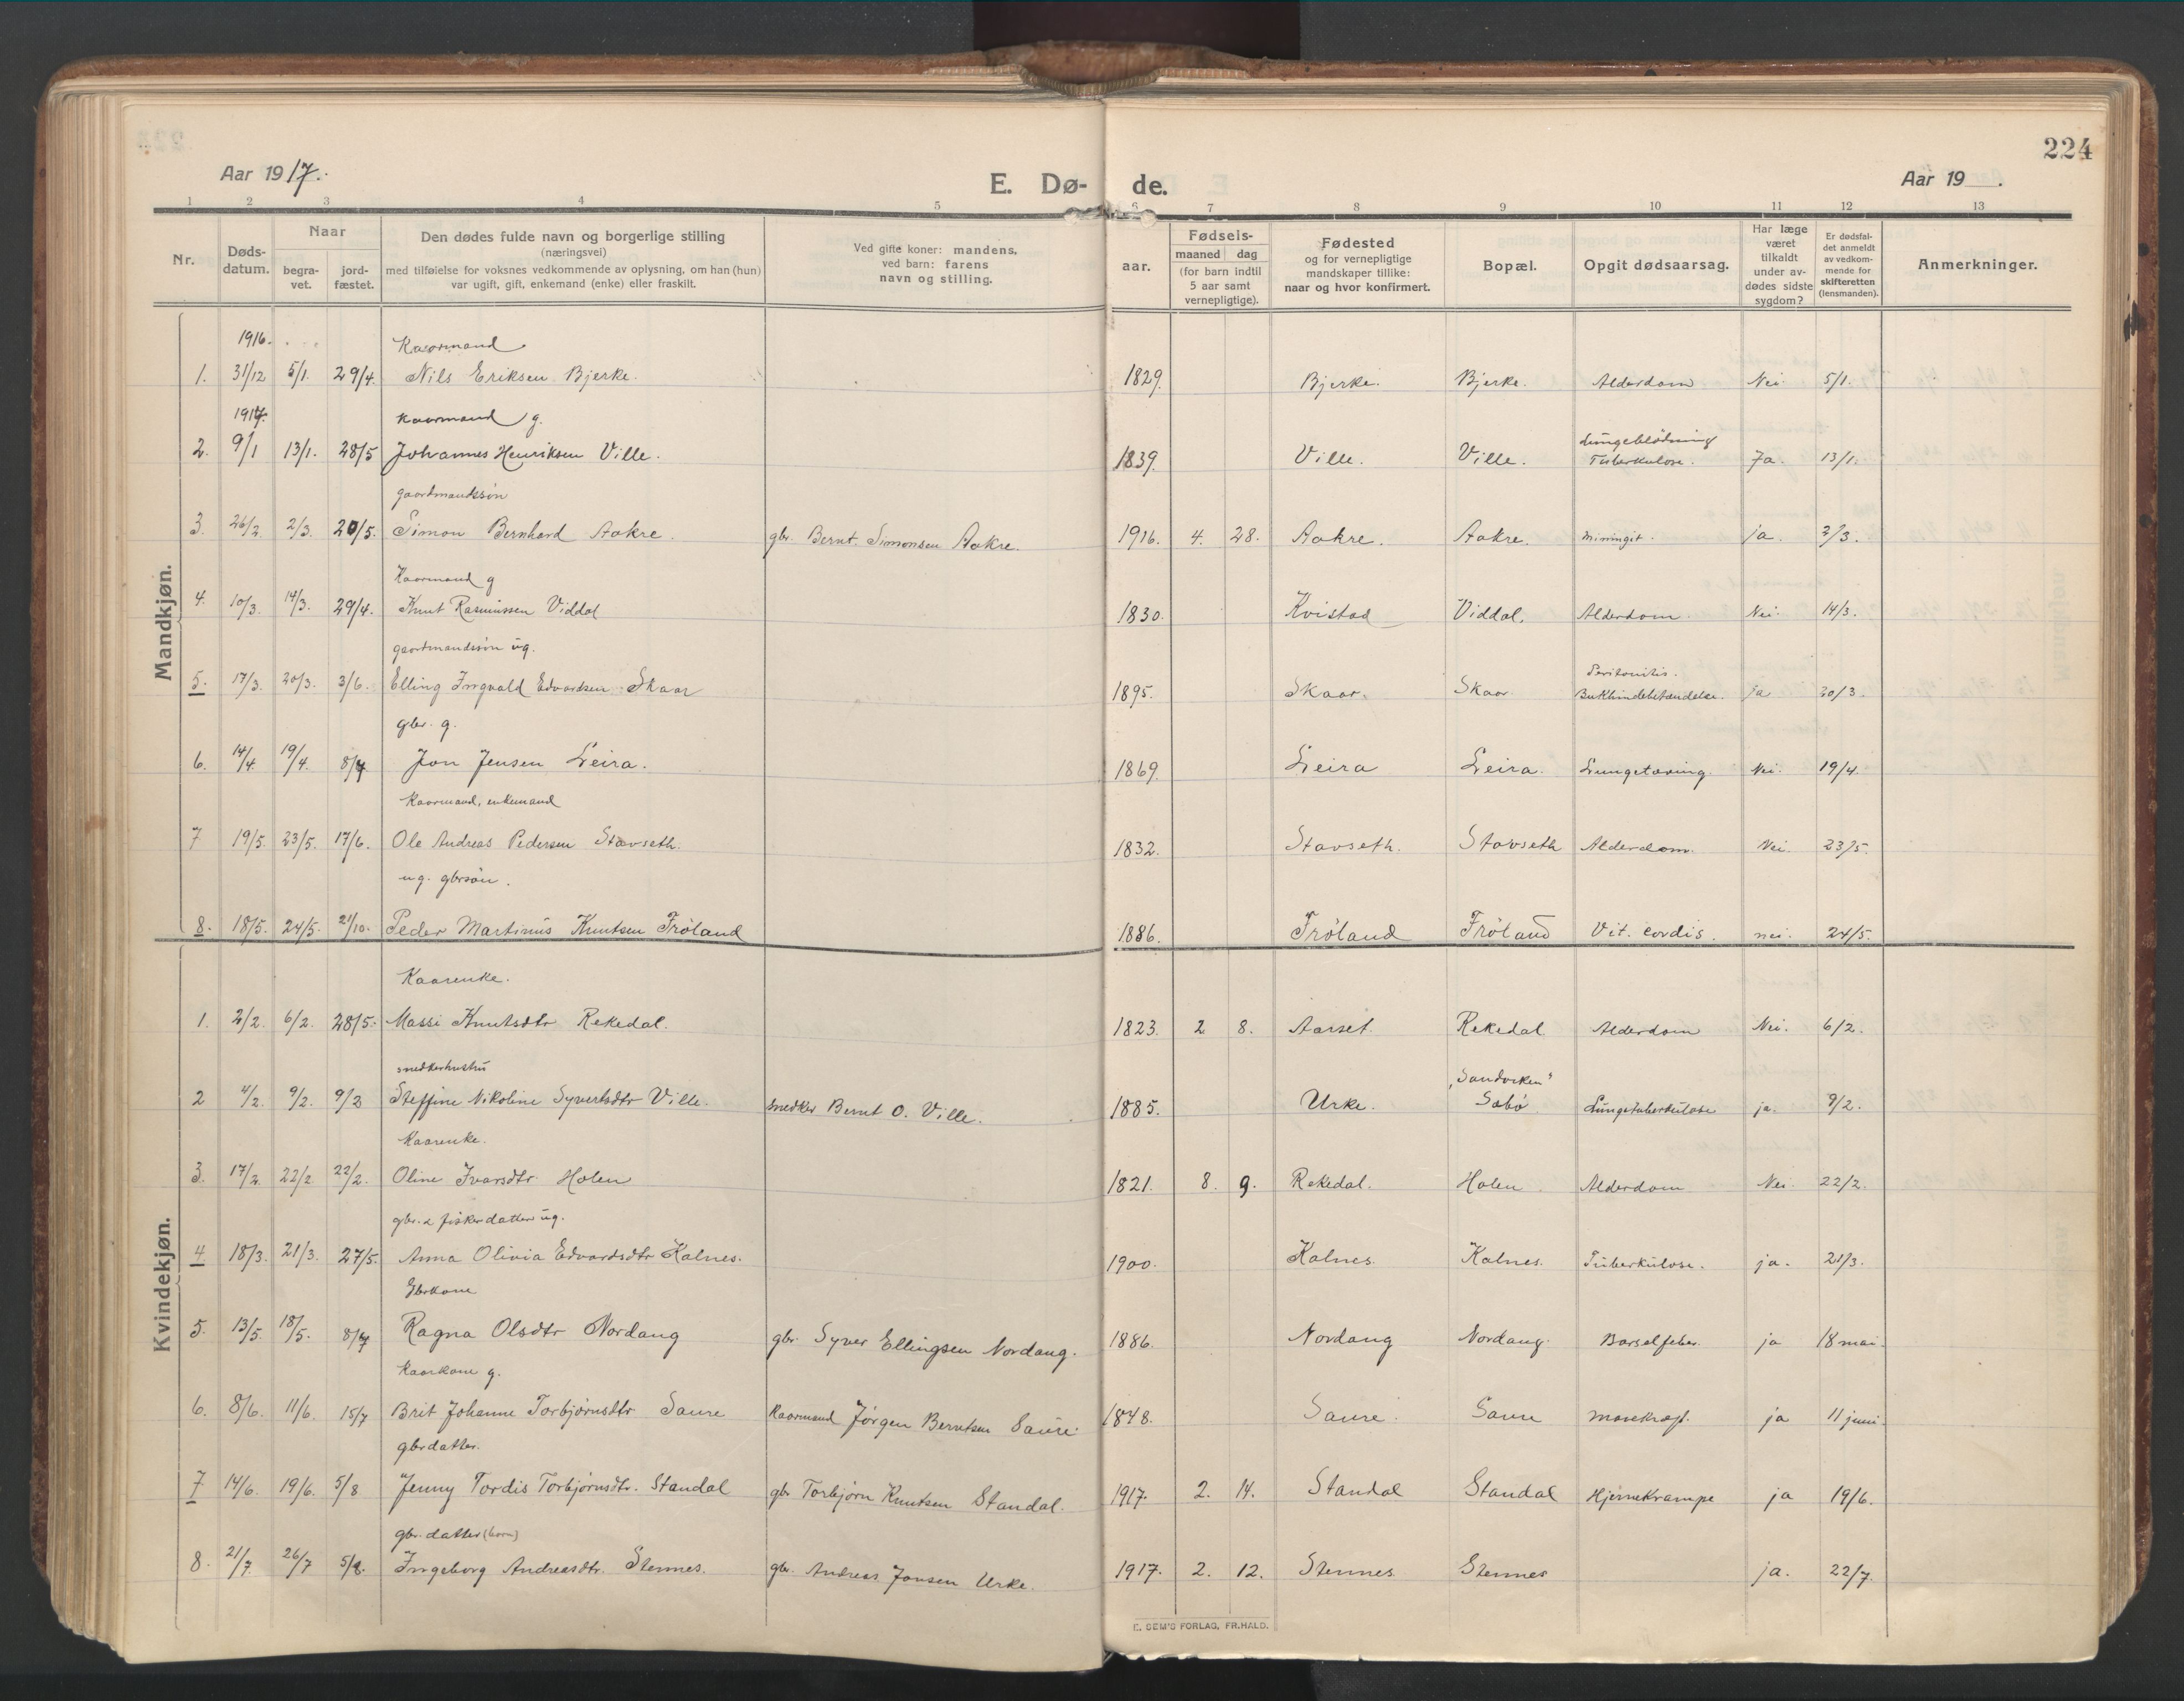 224
Aar 1917.
E. Dø- de.
Aar 19 .
1 2 3 4 5 6 7 8 9 10 11 12 13
Nr.
Døds-
datum.
Naar
begra-
vet.
jord-
fæstet.
Den dødes fulde navn og borgerlige stilling
(næringsvei)
med tilføielse for voksnes vedkommende av oplysning, om han (hun)
var ugift, gift, enkemand (enke) eller fraskilt.
Ved gifte koner: mandens,
ved barn: farens
navn og stilling.
aar.
Fødsels-
maaned dag
(for barn indtil
5 aar samt
vernepligtige).
Fødested
og for vernepligtige
mandskaper tillike:
naar og hvor konfirmert.
Bopæl.
Opgit dødsaarsag.
Har læge
været
tilkaldt
under av-
dødes sidste
sygdom?
Er dødsfal-
det anmeldt
av vedkom-
mende for
skifteretten
(lensmanden).
Anmerkninger.
Mandkjøn.
1916. Kaarmand
1. 31/12 5/1. 29/4. Nils Eriksen Bjerke. 1829. Bjerke. Bjerke. Alderdom Nei. 5/1.
1917. Kaarmand g.
Lungeblödning
2. 9/1 13/1. 28/5 Johannes Henriksen Ville. 1839. Ville. Ville. Tuberkulose. Ja. 13/1.
gaardmandssön
3. 26/2. 2/3. 20/5. Simon Bernhard Aakre. gbr. Bernt. Simonsen Aakre. 1916. 4. 28. Aakre. Aakre. Miningit. ja. 2/3.
Kaarmand g
4. 10/3. 14/3. 29/4. Knut Rasmussen Viddal 1830. Kvistad Viddal. Alderdom. Nei. 14/3.
gaardmandssön ug.
Peritonitis.
5. 17/3. 20/3. 3/6. Elling Ingvald Edvardsen Skaar 1895. Skaar. Skaar Bukhindebetændelse. ja 20/3.
gbr. g.
6. 14/4. 19/4. 8/7 Jon Jensen Leira. 1869. Leira Leira. Lungetæring. Nei. 19/4.
Kaarmand, enkemand
7 19/5. 23/5. 17/6. Ole Andreas Pedersen Stavseth. 1832. Stavseth. Stavseth Alderdom. Nei. 23/5.
ug. gbrsön.
8. 18/5. 24/5. 21/10. Peder Martinus Knutsen Fröland 1886. Fröland Fröland Vit. cordis. nei. 24/5.
Kvindekjøn.
Kaarenke.
1. 2/2. 6/2. 28/5. Massi Knutsdtr Rekedal. 1823. 2 8. Aarset. Rekedal Alderdom Nei. 6/2.
snedkerhustru
"Sandviken"
2 4/2. 9/2. 9/2 Steffine Nikoline Syvertsdtr Ville. snedker Bernt O. Ville. 1885. Urke. Sæbö Lungetuberkulose ja. 9/2.
Kaarenke.
3. 17/2 22/2 22/2. Oline Ivarsdtr. Holen 1821. 8. 9. Rekedal. Holen. Alderdom Nei. 22/2.
gbr. & fiskerdatter ug.
4 18/3. 21/3. 27/5. Anna Olivia Edvardsdtr Kalnes. 1900. Kalnes. Kalnes. Tuberkulose. ja. 21/3.
Gbrkone
5. 13/5. 18/5. 8/7 Ragna Olsdtr Nordang gbr. Syver Ellingsen Nordang. 1886. Nordang Nordang. Barselfeber. ja 18 mai.
Kaarkone g.
6. 8/6. 11/6. 15/7 Brit Johanne Torbjörnsdtr Saure Kaarmand Jörgen Berntsen Saure. 1848. Saure. Saure Mavekræft. ja 11 juni.
gbrdatter.
7 14/6. 19/6. 5/8 Jenny Tordis Torbjörnsdtr. Standal gbr Torbjörn Knutsen Standal. 1917. 2. 14. Standal Standal Hjernekrampe ja 19/6.
gbr. datter (barn)
8. 21/7. 26/7 5/8. Ingeborg Andreasdtr. Stennes. gbr. Andreas Jonsen Urke. 1917. 2. 12. Stennes Stennes ja. 22/7.
E. SEM'S FORLAG, FR.HALD.